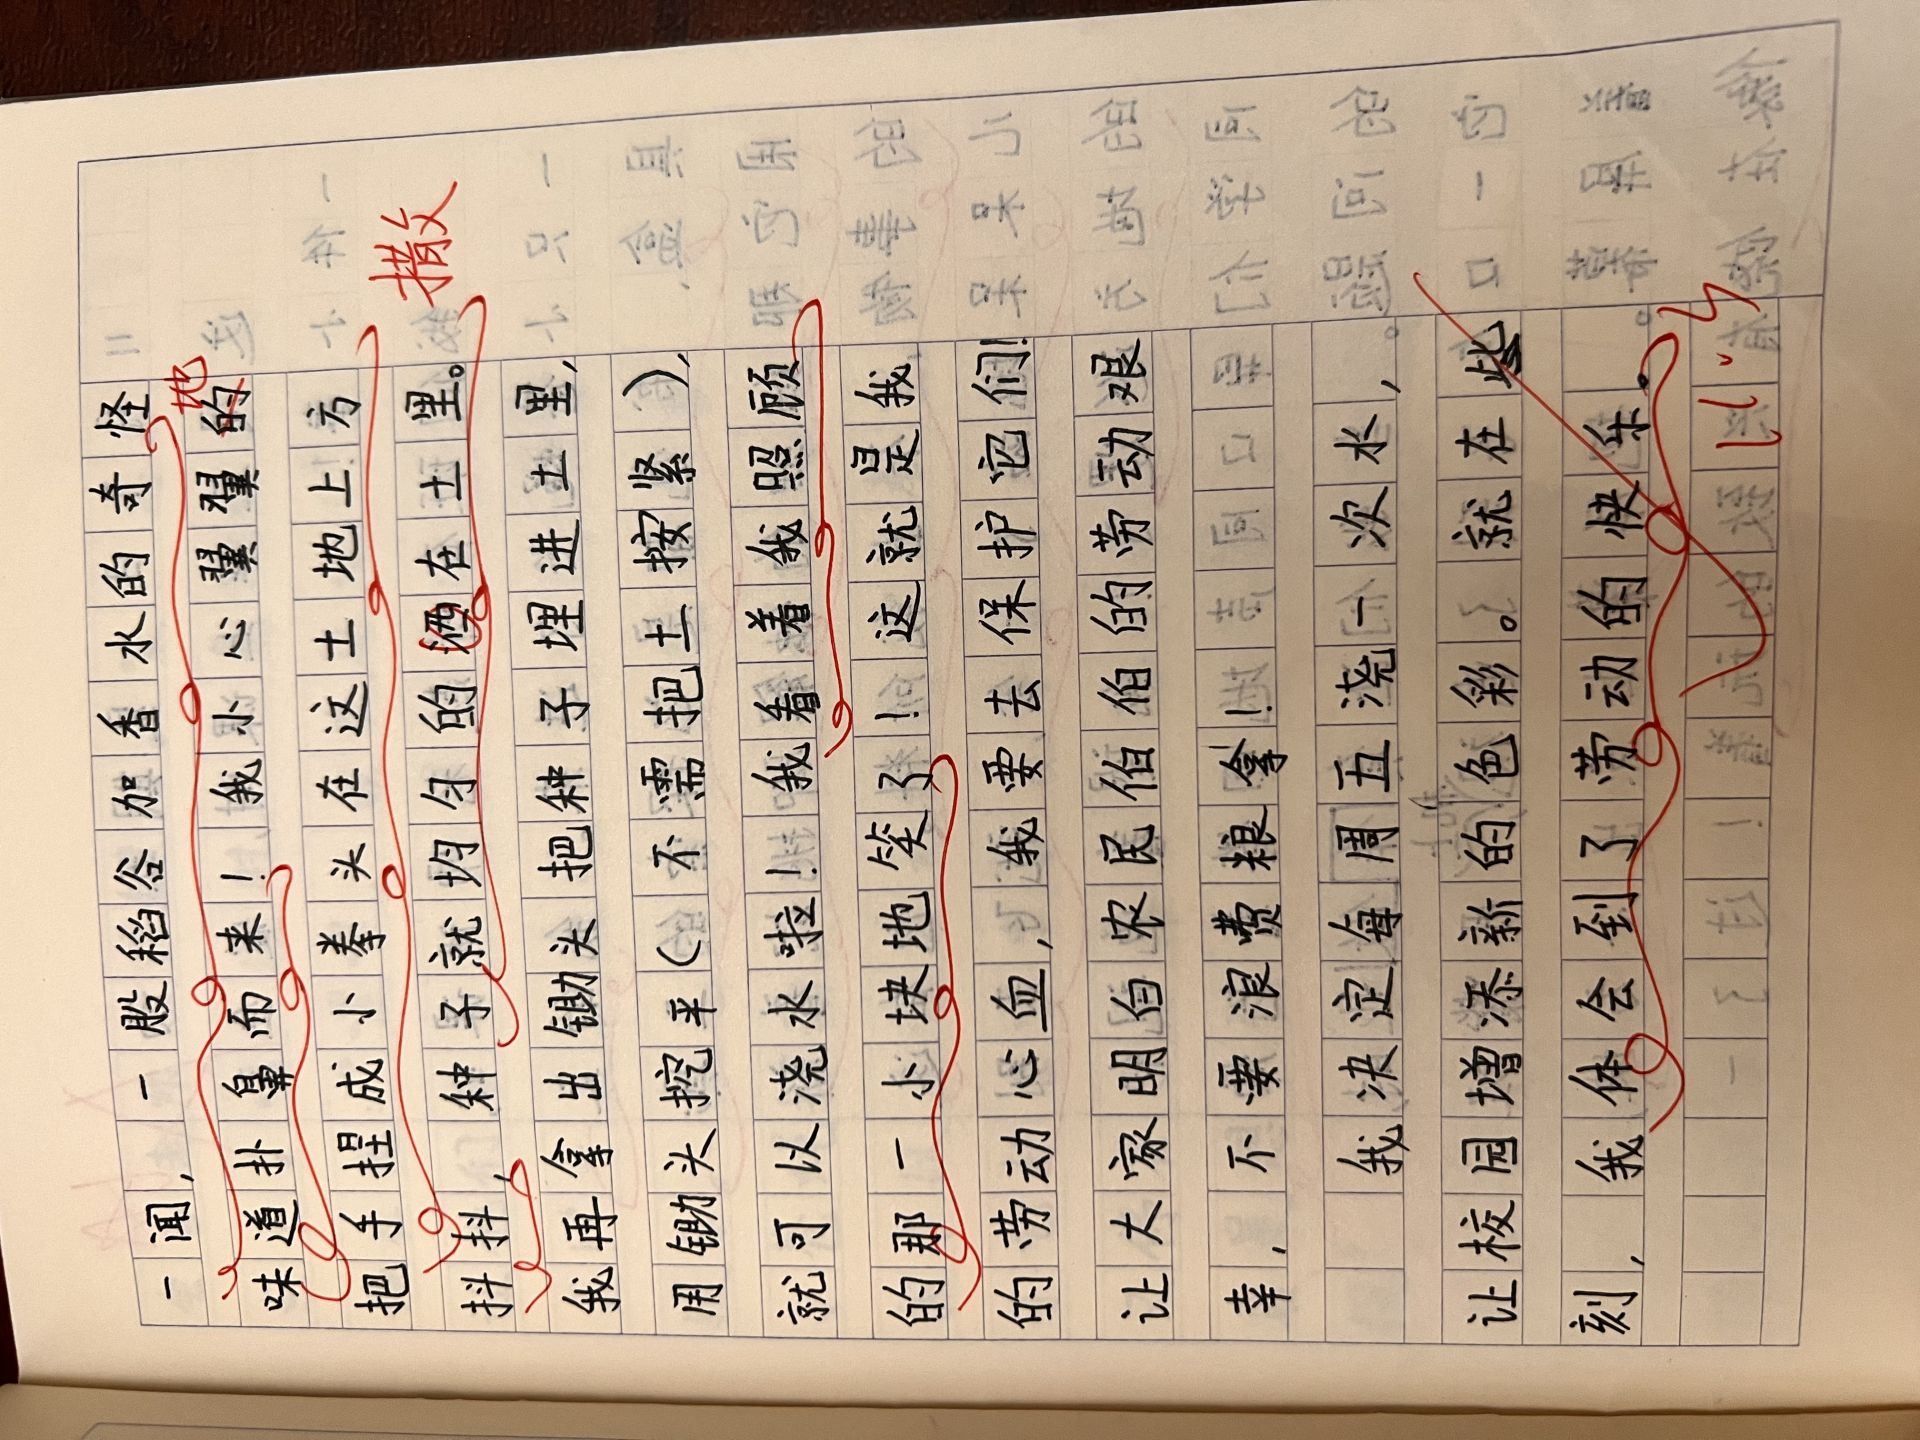 一闻，一股稻谷加香水的奇怪
地
味道扑鼻而来！我小心翼翼的
把手捏成小拳头在这土地上方
撒
抖抖，种子就均匀的洒在土里。
我再拿出锄头把种子埋进土里，
用锄头挖平（不需把土按紧），
就可以浇水啦！我看着我照顾
的那一小块地笑了！这就是我
的劳动心血，我要去保护它们！
让大家明白农民伯伯的劳动艰
幸，不要浪费粮食！
我决定每周五浇一次水，
让校园增添新的色彩。就在此
刻，我体会到了劳动的快乐。